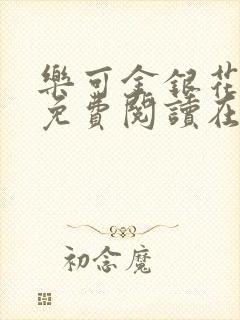 樂可金銀花
免費閱讀在
初念魔